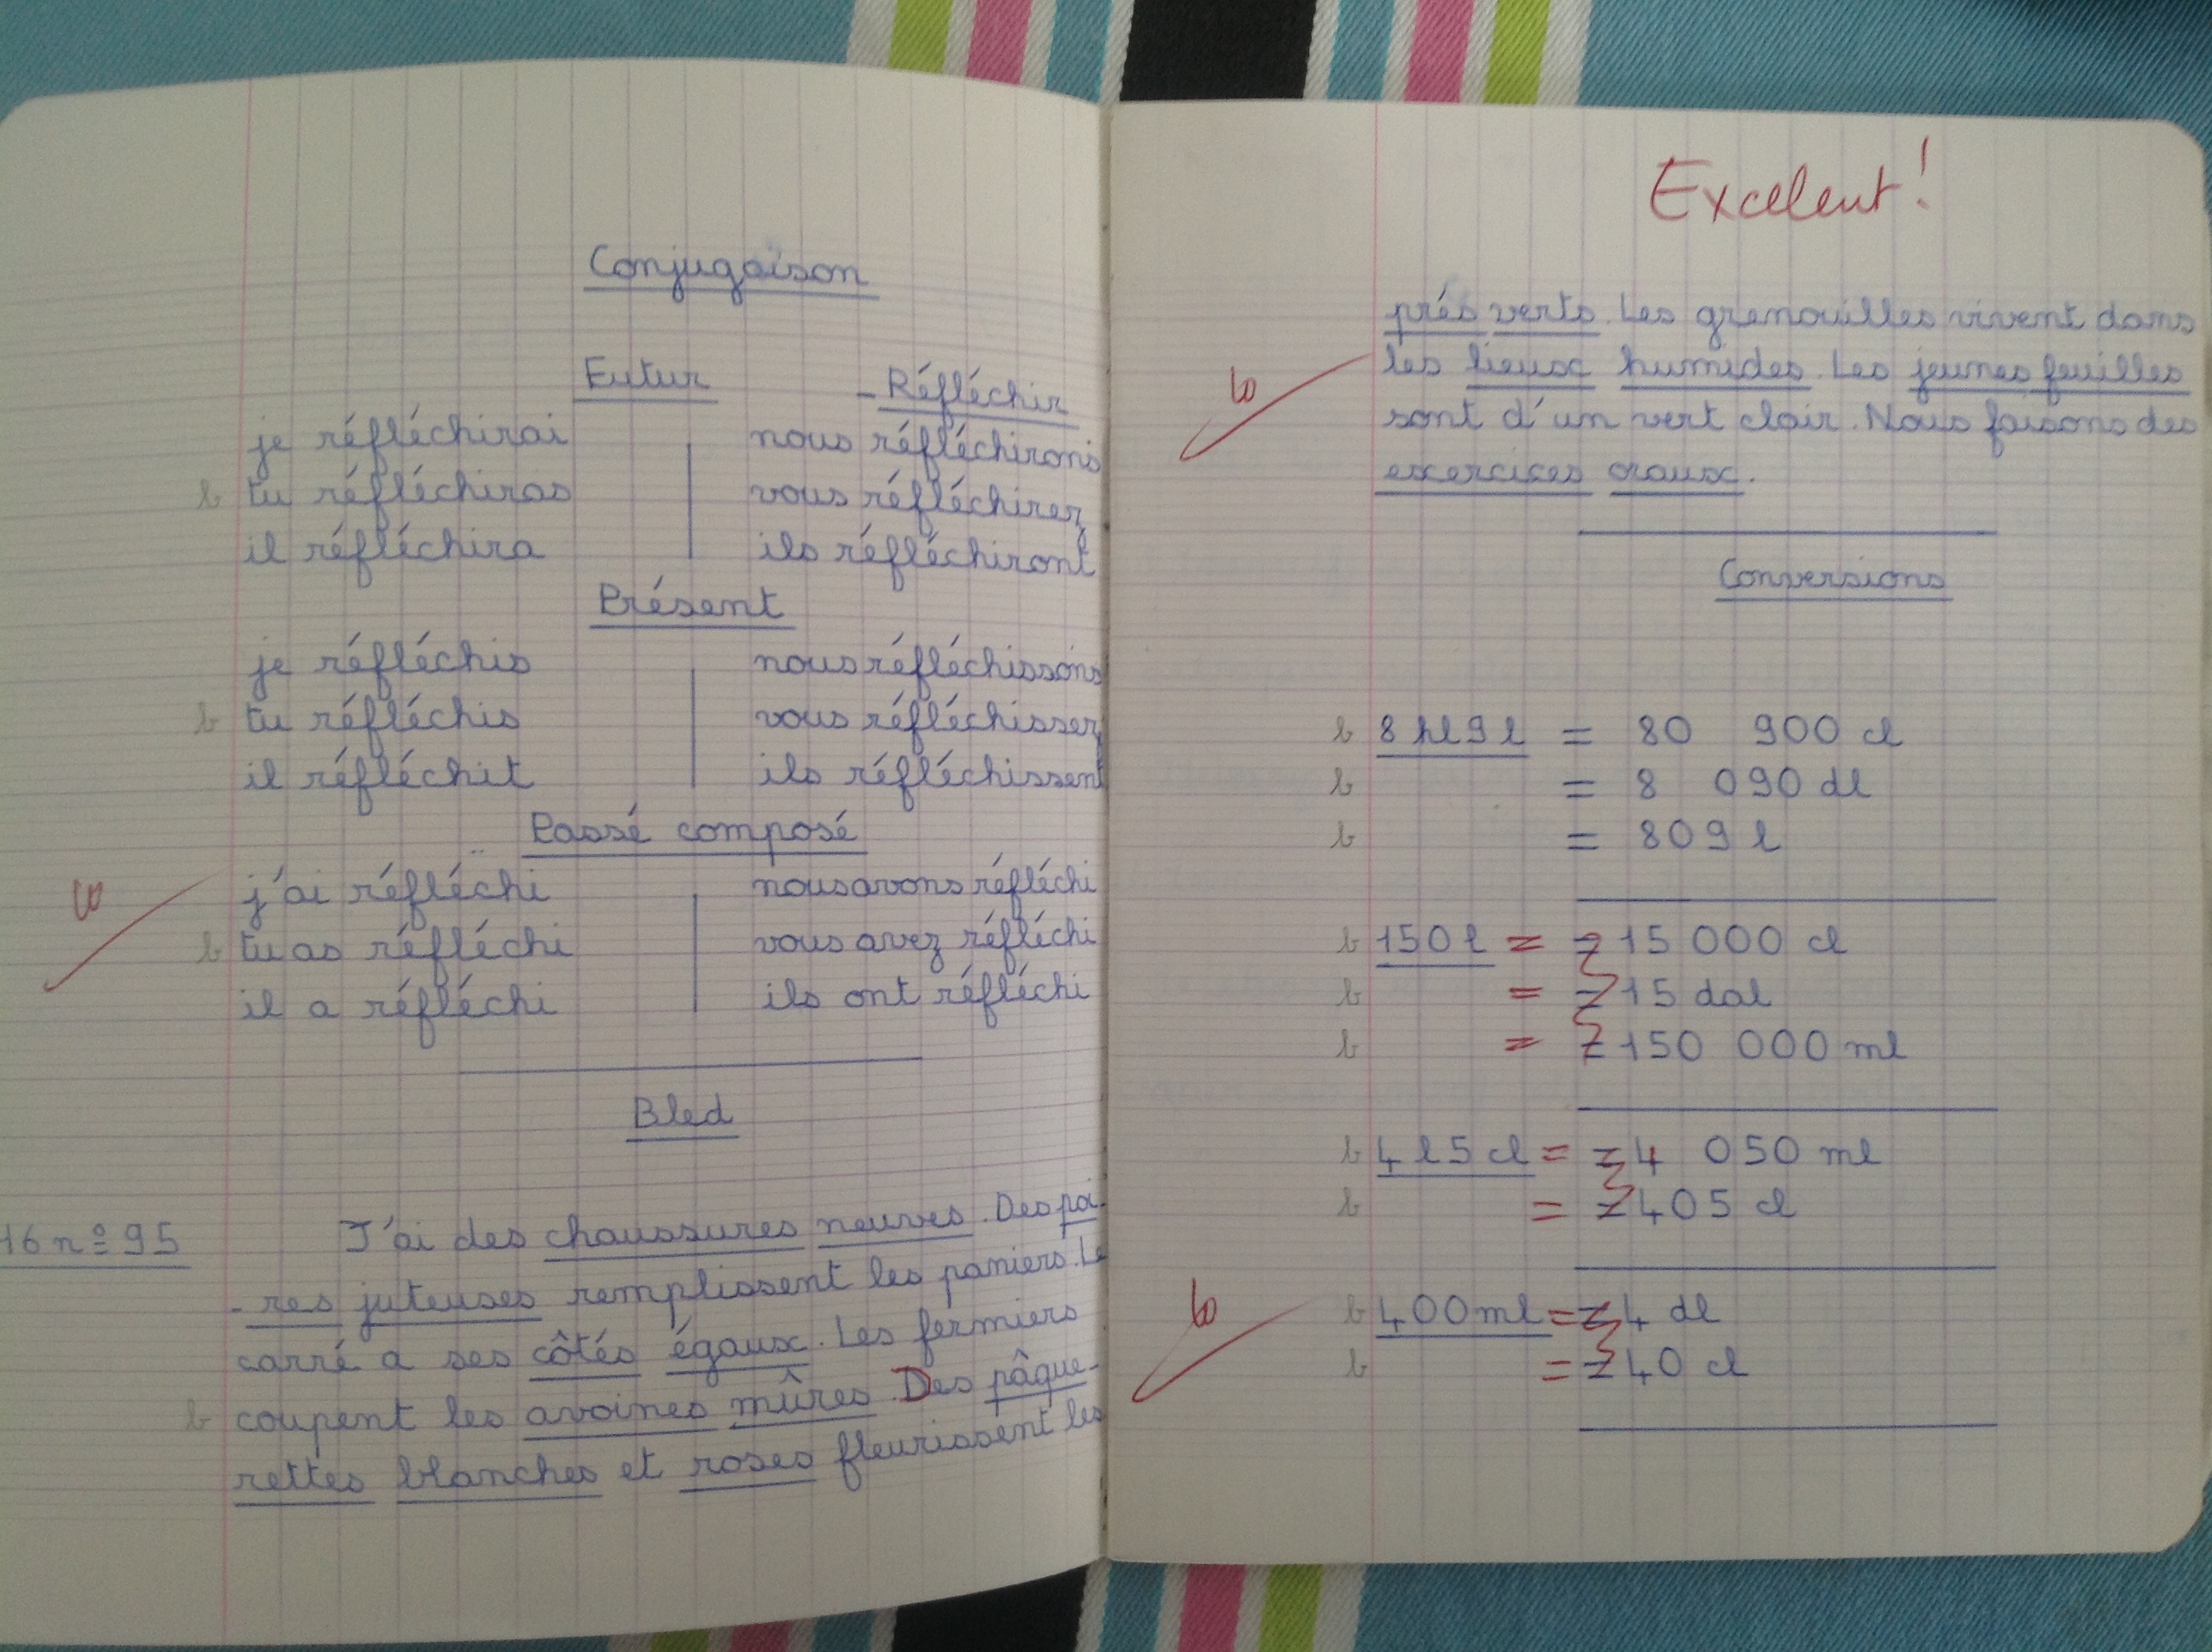 Conjugaison
Futur - Réfléchir
je réfléchirai nous réfléchirons
tu réfléchiras vous réfléchirez
il réfléchira ils réfléchiront
Présent
je réfléchis nous réfléchissons
tu réfléchis vous réfléchissez
il réfléchit ils réfléchissent
Passé composé
j'ai réfléchi nous avons réfléchi
tu as réfléchi vous avez réfléchi
il a réfléchi ils ont réfléchi
Bled
16 n° 95 J'ai des chaussures neuves. Des poi-
-res juteuses remplissent les paniers. Le
carré a ses côtés égaux. Les fermiers
coupent les avoines mûres. Des pâque-
rettes blanches et roses fleurissent les
Excelent!
prés verts. Les grenouilles vivent dans
les lieux humides. Les jeunes feuilles
sont d'un vert clair. Nous faisons des
exercices oraux.
Conversions
8hl9l = 80 900 cl
= 8 090 dl
= 809 l
150l = 15 000 cl
= 15 dal
= 150 000 ml
4l5cl = 4 050 ml
= 405 cl
400ml = 4 dl
= 40 cl